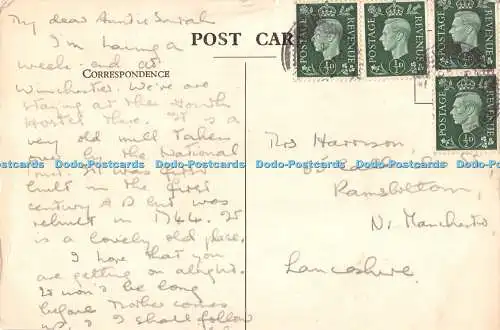 My dear Auntie Sarah
I'm having a
week-end at
Winchester. We're
staying at the Youth
Hostel there. It is a
very old mill taken
over by the National
Trust. It was first
built in the first
century A D but was
rebuilt in 1744. It
is a lovely old place.
I hope that you
are getting on alright.
It won't be long
before Mother comes
I shall follow
POST CAR
CORRESPONDENCE
POSTAGE REVENUE ½D
POSTAGE REVENUE ½D
POSTAGE REVENUE ½D
POSTAGE REVENUE ½D
Mrs Harrison,
Ramsbottom,
Nr. Manchester,
Lancashire.
Dodo-Postcards Dodo-Postcards Dodo-Postcards Dodo-Postcards Dodo-Postcards